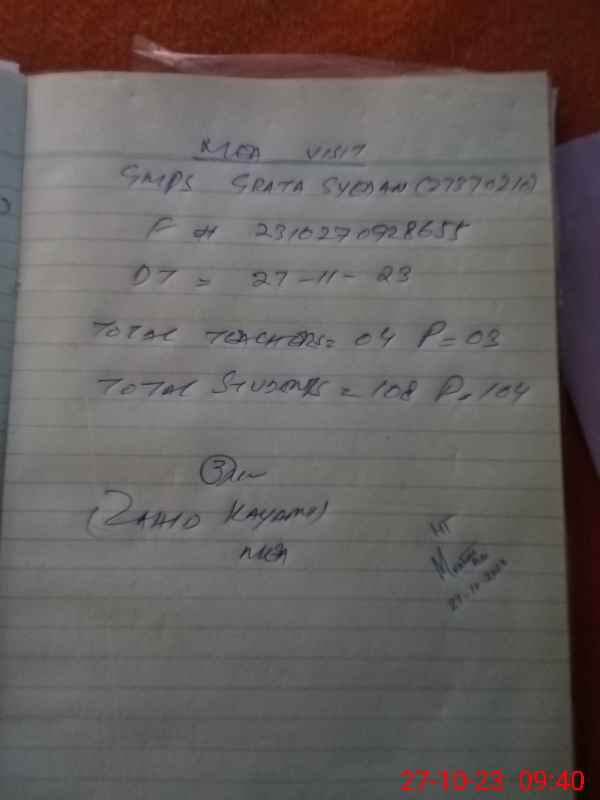 MEA VISIT
GMPS GRATA SYEDAN (27370210)
F # 2310270928655
DT = 27-11-23
TOTAL TEACHERS = 04 P = 03
TOTAL STUDENTS = 108 P = 104
(ZAHID KAYANI)
MEA
HT
27-10-2023
27-10-23 09:40